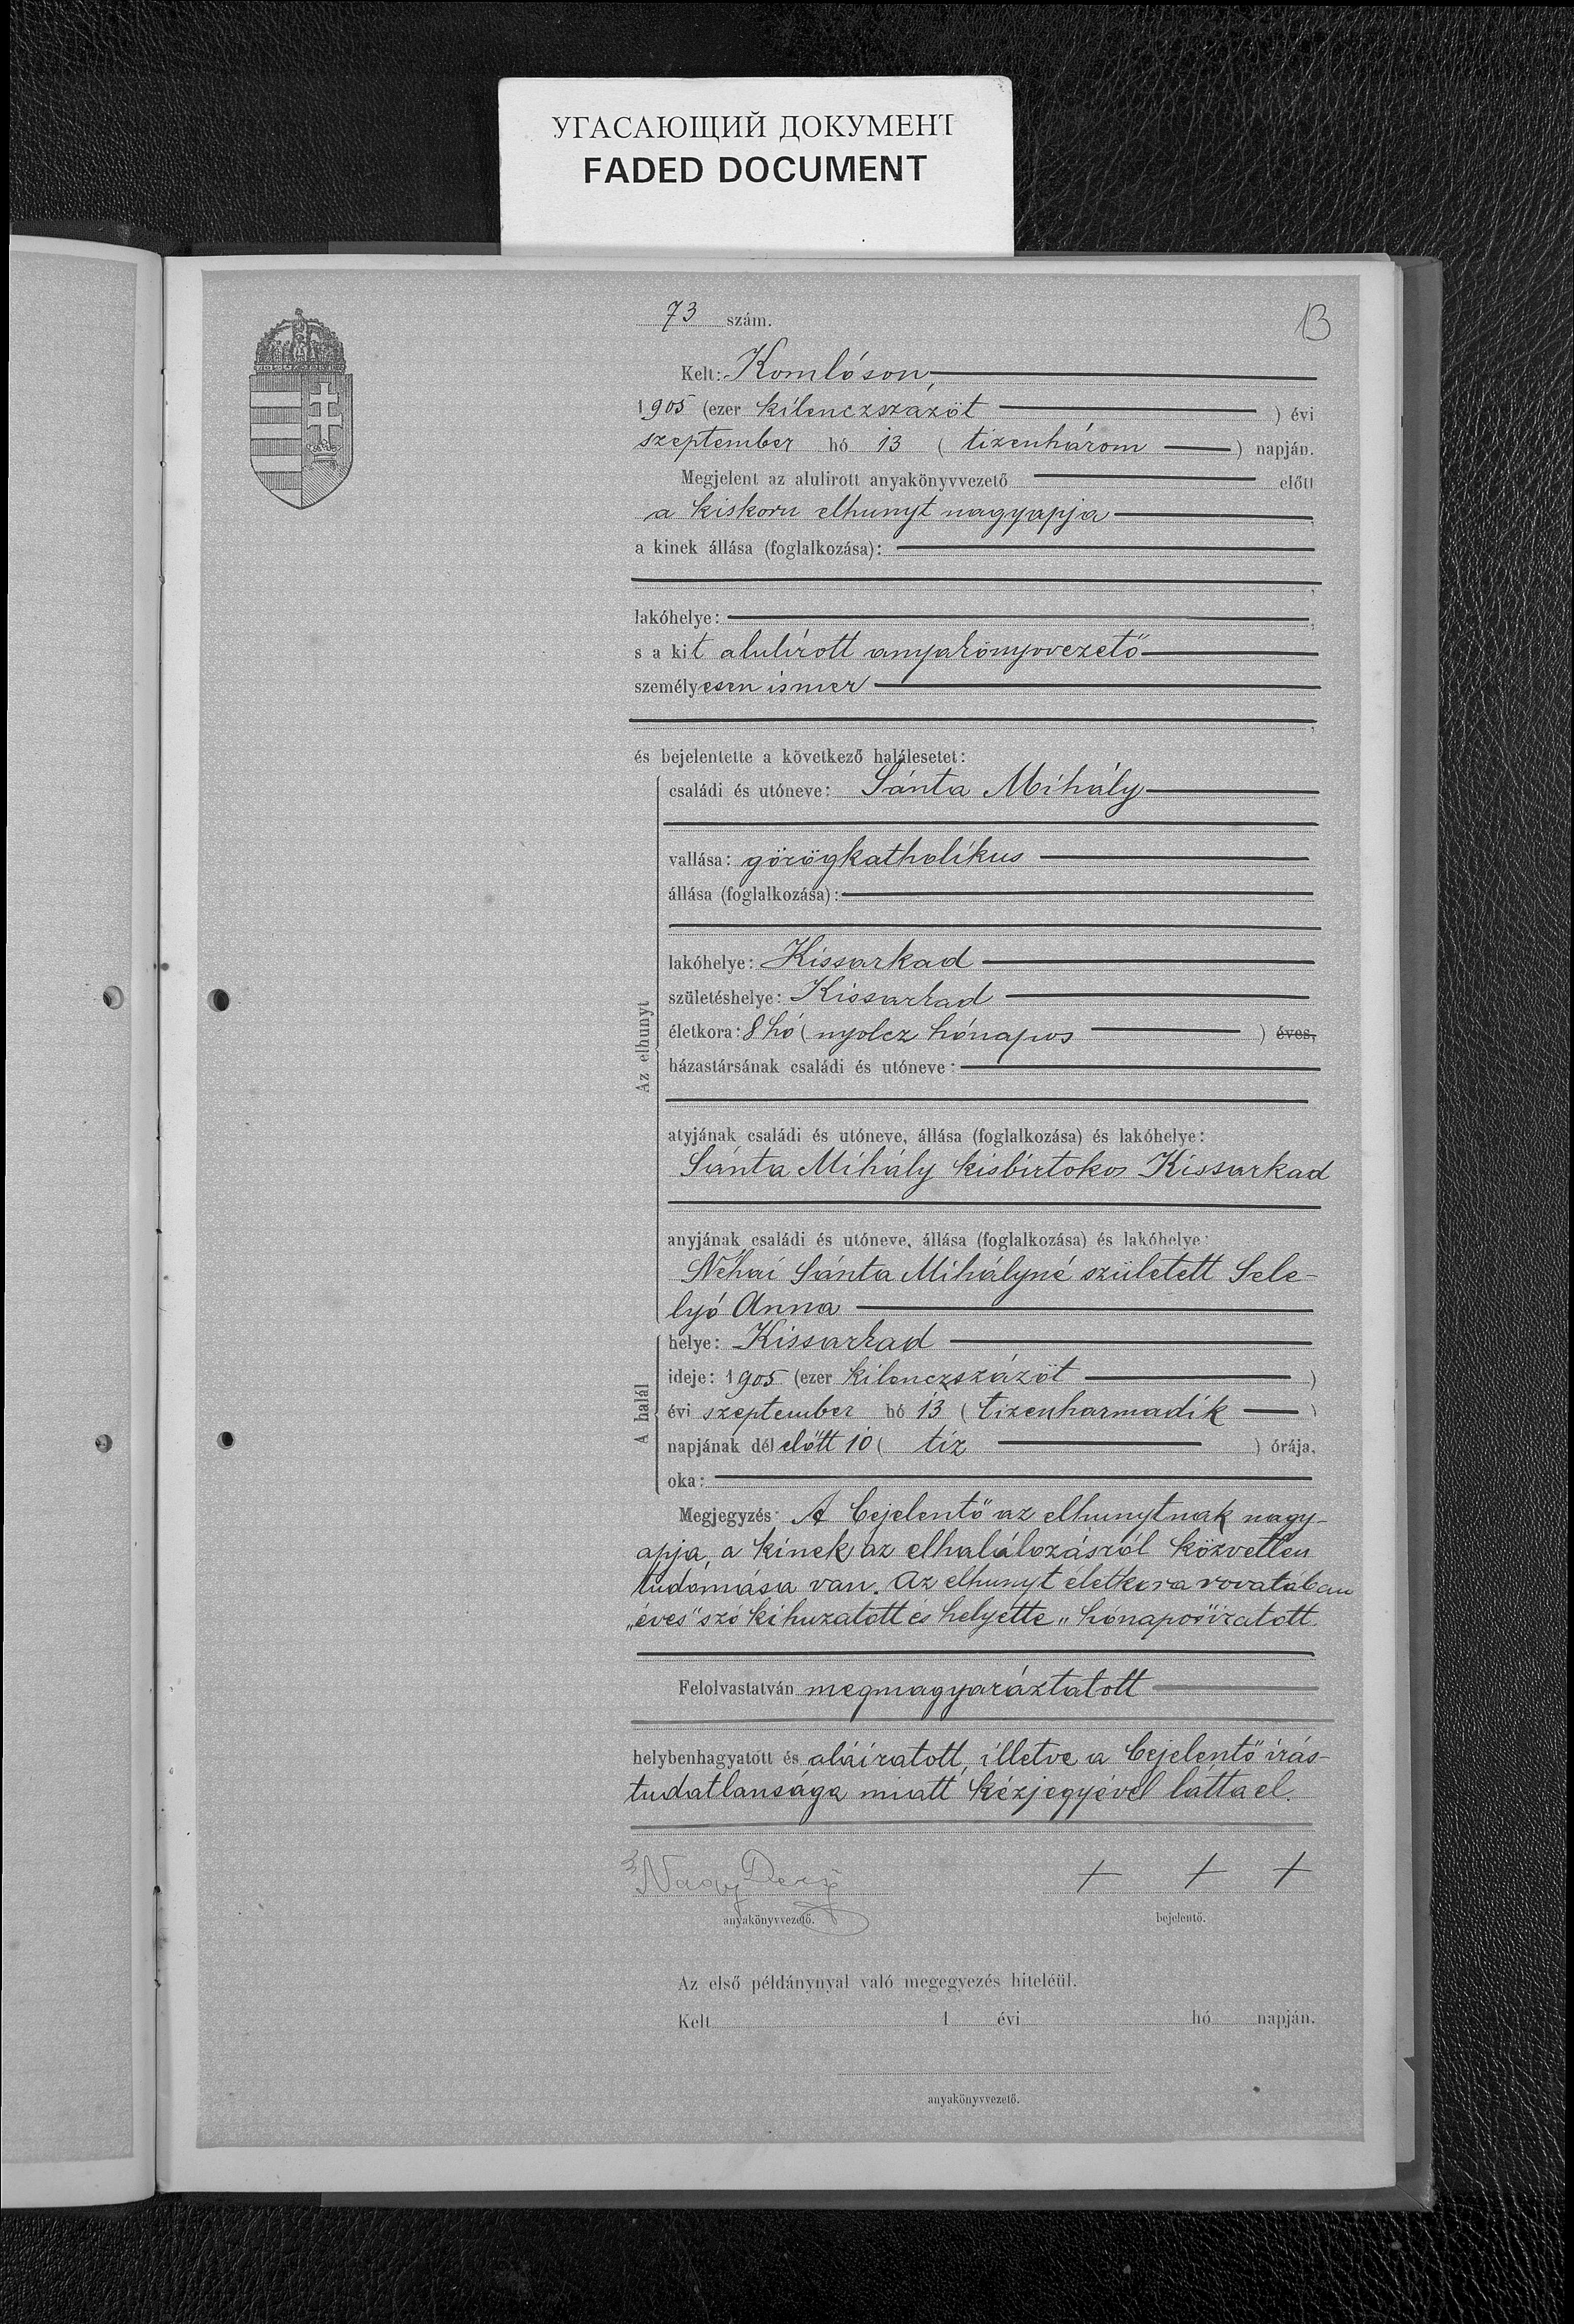 УГАСАЮЩИЙ ДОКУМЕНТ
FADED DOCUMENT
73 szám.
13
Kelt: Komlóson,
1905 (ezer kilenczszázöt ) évi
szeptember hó 13 ( tizenhárom ) napján.
Megjelent az alulirott anyakönyvvezető előtt
a kiskoru elhunyt nagyapja ,
a kinek állása (foglalkozása):
,
lakóhelye: ,
s a kit alulírott anyakönyvvezető
személyesen ismer
,
és bejelentette a következő halálesetet:
Az elhunyt
családi és utóneve: Sánta Mihály
vallása: görögkatholikus
állása (foglalkozása):
lakóhelye: Kissarkad
születéshelye: Kissarkad
életkora: 8 hó ( nyolcz hónapos ) éves,
házastársának családi és utóneve:
atyjának családi és utóneve, állása (foglalkozása) és lakóhelye:
Sánta Mihály kisbirtokos Kissarkad
anyjának családi és utóneve, állása (foglalkozása) és lakóhelye:
Néhai Sánta Mihályné született Sele-
lyó Anna
A halál
helye: Kissarkad
ideje: 1905 (ezer kilenczszázöt )
évi szeptember hó 13 ( tizenharmadik )
napjának dél előtt 10 ( tíz ) órája.
oka:
Megjegyzés: A bejelentő az elhunytnak nagy-
apja, a kinek az elhalálozásról közvetlen
tudomása van. Az elhunyt életkora rovatában
„éves" szó kihuzatott és helyette „hónapos" iratott.
Felolvastatván megmagyaráztatott
helybenhagyatott és aláiratott, illetve a bejelentő irás-
tudatlansága miatt kézjegyével látta el.
Nagy + + +
anyakönyvvezető. bejelentő.
Az első példánynyal való megegyezés hiteléül.
Kelt 1 évi hó napján.
anyakönyvvezető.